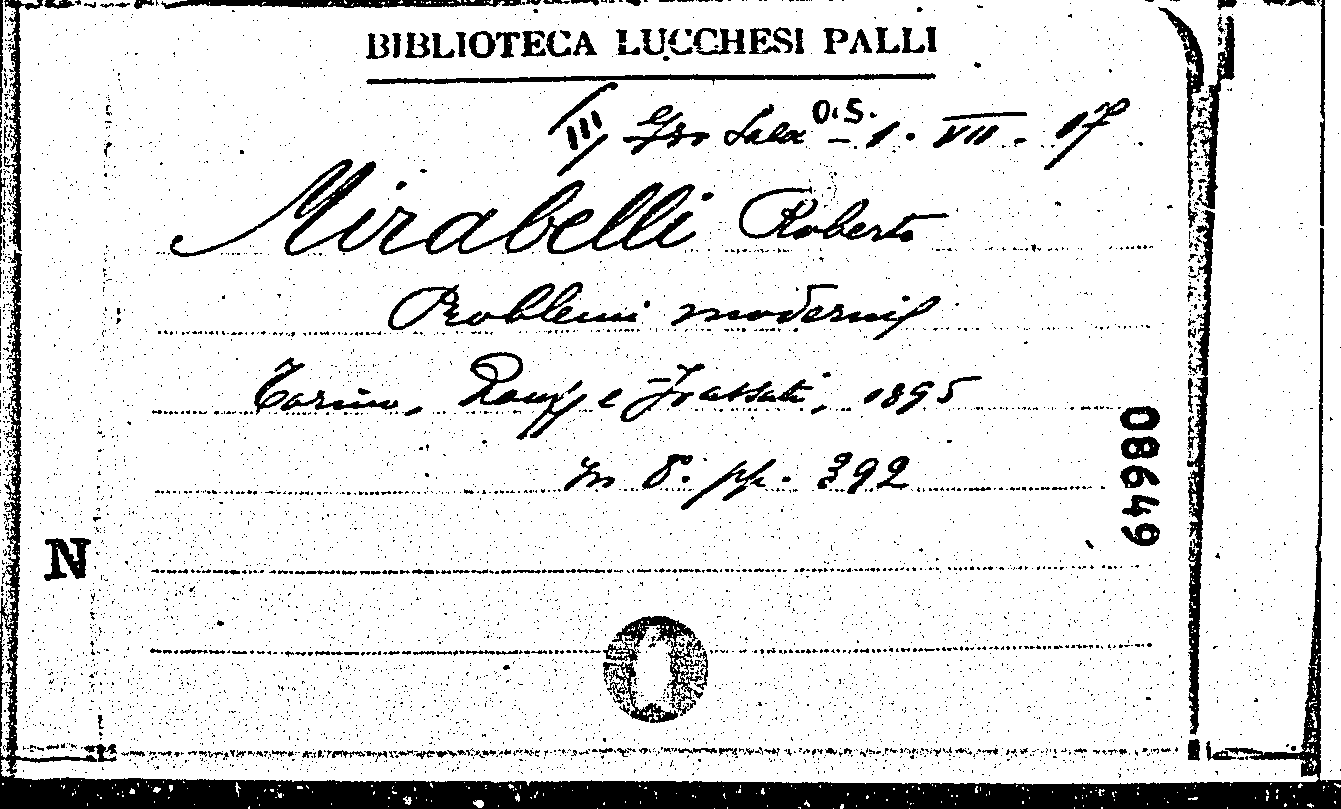 BIBLIOTECA LUCCHESI PALLI
III Sala O.S. - 1. VII. 17
Mirabelli Roberto
Problemi moderni
Torino, Roux e Frassati, 1895
in 8.° pp. 392
08649
N